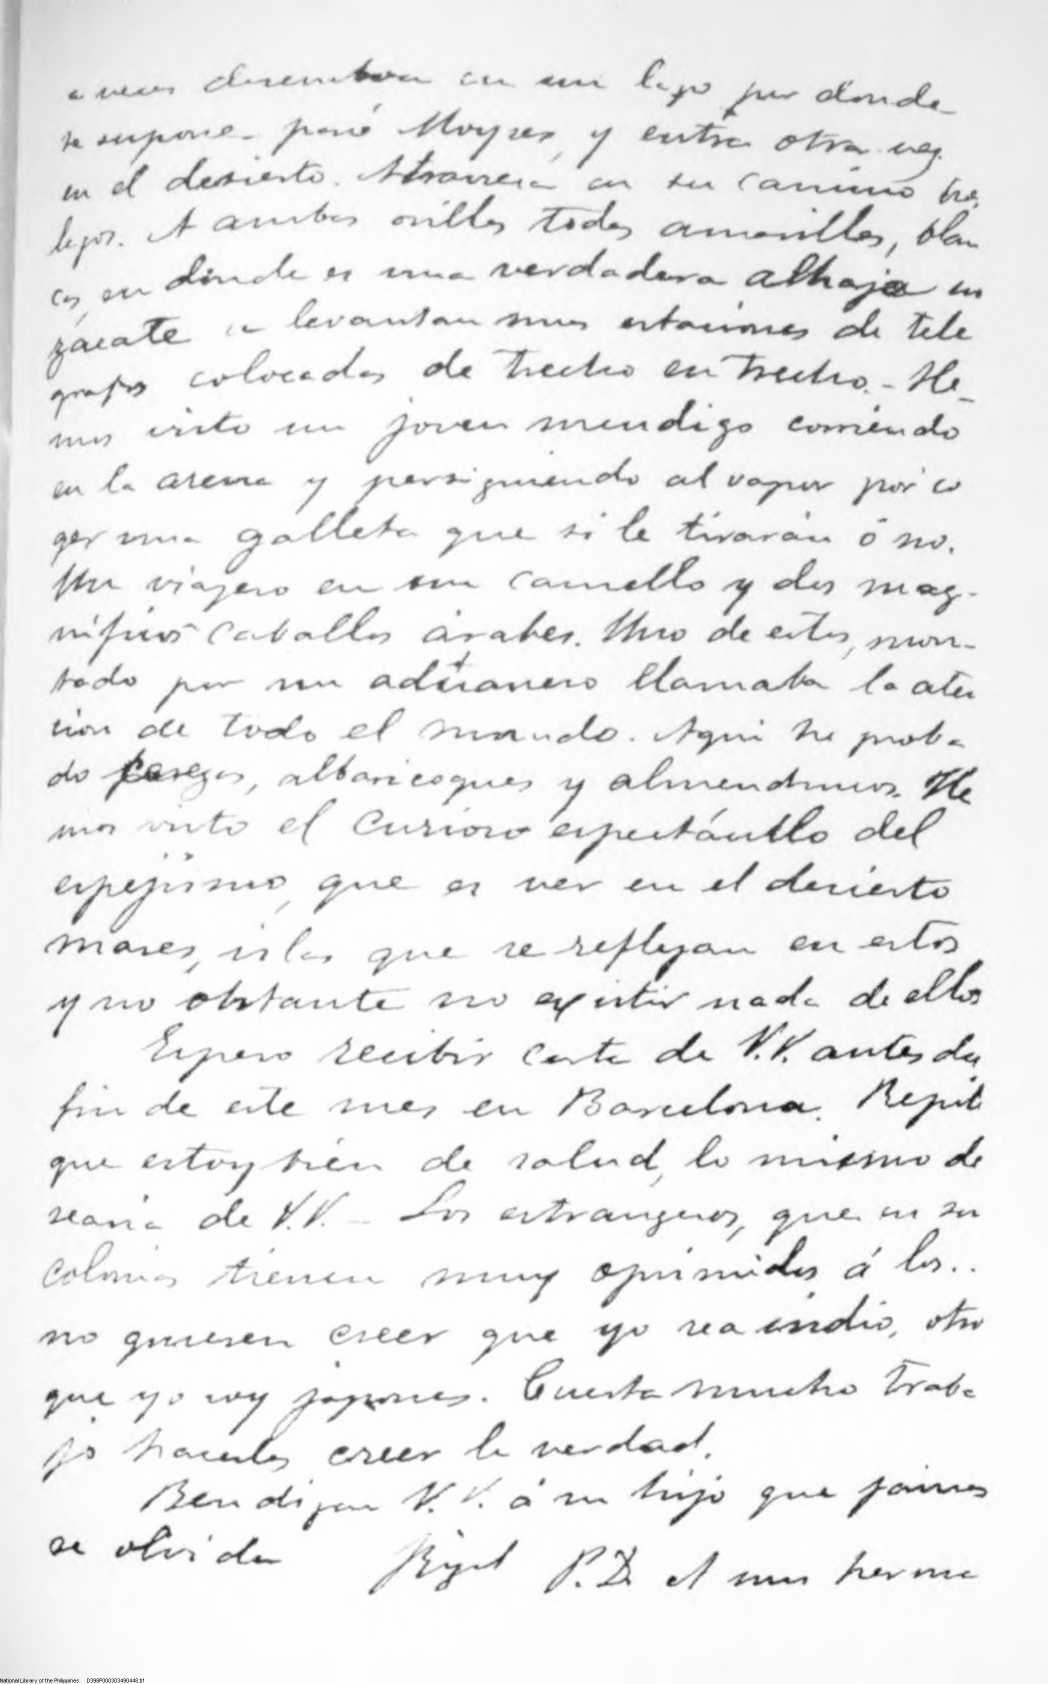 a veces desemboca en un lago por donde
se supone pasó Moyses, y entra otra vez
en el desierto. Atraviesa en su camino tre
lagos. A ambas orillas todas amarillas, blan
cas, en donde es una verdadera alhaja un
zacate se levantan unas estaciones de tele
grafos colocadas de trecho en trecho. - He_
mos visto un joven mendigo corriendo
en la arena y persiguiendo al vapor por co
ger una galleta que si le tirarán ó no.
Un viajero en un camello y dos mag-
níficos caballos árabes. Uno de estos, mon-
tado por un aduanero llamaba la aten
cion de todo el mundo. Aqui he proba
do cerezas, albaricoques y almendrucos. He
mos visto el curioso espectáculo del
espejismo, que es ver en el desierto
mares, islas que se reflejan en estos
y no obstante no existir nada de ellos
Espero recibir carta de V.V. antes del
fin de este mes en Barcelona. Repito
que estoy bién de salud, lo mismo de
searia de V.V. - Los estrangeros, que en su
colonias tienen muy oprimidos á los..
no quieren creer que yo sea indio, otro
que yo soy japones. Cuesta mucho traba
jo hacerles creer la verdad.
Bendigan V.V. á su hijo que jamas
se olvida
Rizal P.D. A mis herma
National Library of the Philippines D398P000303490448.01